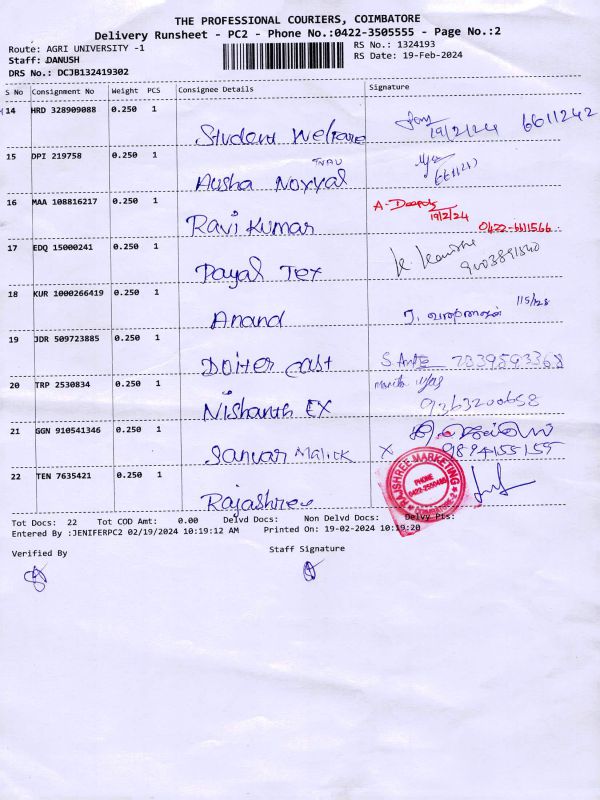 THE PROFESSIONAL COURIERS, COIMBATORE
Delivery Runsheet - PC2 - Phone No.:0422-3505555 - Page No.:2
Route: AGRI UNIVERSITY -1
RS No.: 1324193
Staff: DANUSH
RS Date: 19-Feb-2024
DRS No.: DCJB132419302
S No Consignment No Weight PCS Consignee Details Signature
14 HRD 328909088 0.250 1
Student Welfare 19/2/24 6611242
15 DPI 219758 0.250 1
TNAU
Noyyal
16 MAA 108816217 0.250 1
Ravi Kumar 19/2/24
0422-6611566
17 EDQ 15000241 0.250 1
Payal Tex
18 KUR 1000266419 0.250 1
Anand
19 JDR 509723885 0.250 1
20 TRP 2530834 0.250 1
Nishanth EX 9263200658
21 GGN 910541346 0.250 1
Sanvar Malick X 9894155155
22 TEN 7635421 0.250 1
Rajashree
RAJSHREE MARKETING
PHONE
COIMBATORE-2
Tot Docs: 22 Tot COD Amt: 0.00 Delvd Docs: Non Delvd Docs: Delvy Pts:
Entered By :JENIFERPC2 02/19/2024 10:19:12 AM Printed On: 19-02-2024 10:19:20
Verified By Staff Signature